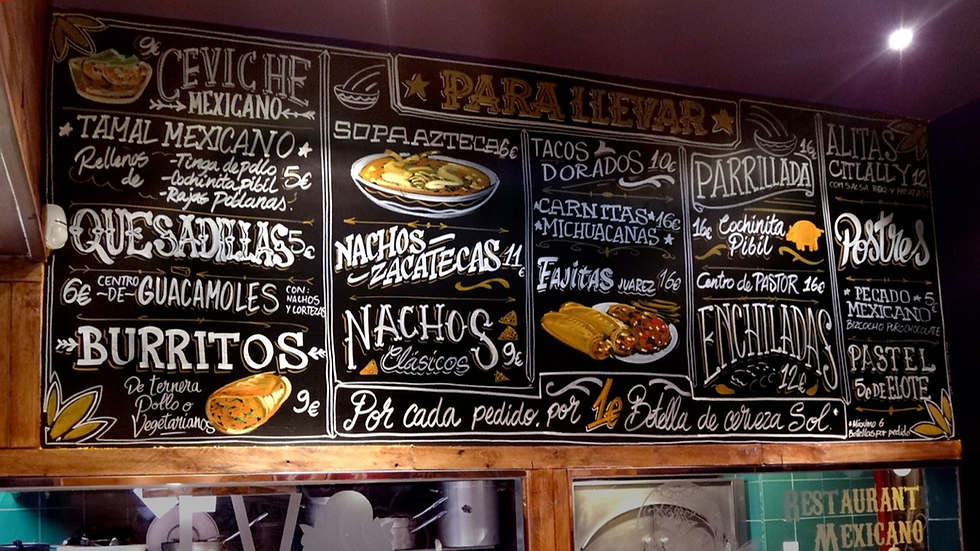 PARA LLEVAR
9€ CEVICHE
MEXICANO
TAMAL MEXICANO
Rellenos de
-Tinga de pollo
-Cochinita Pibil
-Rajas Poblanas.
5€
QUESADILLAS 5€
6€ CENTRO -DE- GUACAMOLES CON: NACHOS Y CORTEZAS
BURRITOS
De ternera
Pollo o
Vegetarianos
9€
SOPA AZTECA 6€
NACHOS
ZACATECAS 11€
NACHOS
Clásicos 9€
TACOS
DORADOS 10€
CARNITAS 16€
MICHUACANAS
FAJITAS JUAREZ 16€
16€
PARRILLADA
16€ Cochinita
Pibil
Centro de PASTOR 16€
ENCHILADAS
12€
ALITAS
CITLALLY 12
CON SALSA BBQ Y
Postres
PECADO 5€
MEXICANO
BIZCOCHO PURO CHOCOLATE
PASTEL
5€ DE ELOTE
Por cada pedido, por 1€ Botella de cerveza Sol.*
*Máximo 6
Botellas por pedido
RESTAURANT
MEXICANO